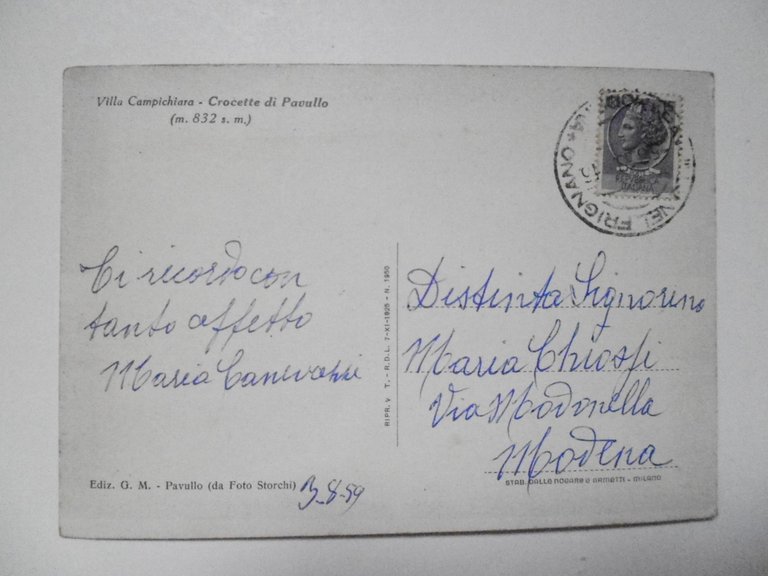 Villa Campichiara - Crocette di Pavullo
(m. 832 s. m.)
NEL FRIGNANO
ITALIANA
Ti ricordo con
tanto affetto
Maria
Distinta Signorina
Maria Chiossi
Via Modonella
Modena
RIPR. V T. - R.D.L. 7-XI-1925 - N. 1950
Ediz. G. M. - Pavullo (da Foto Storchi)
3-8-59
STAB. DALLE NOGARE e ARMETTI - MILANO